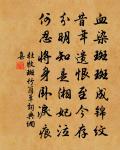 血染斑斑成錦紋
昔年遺恨至今存
分明知是湘妃泣
何忍將身臥淚痕
杜牧斑竹筒簟詞典網
集